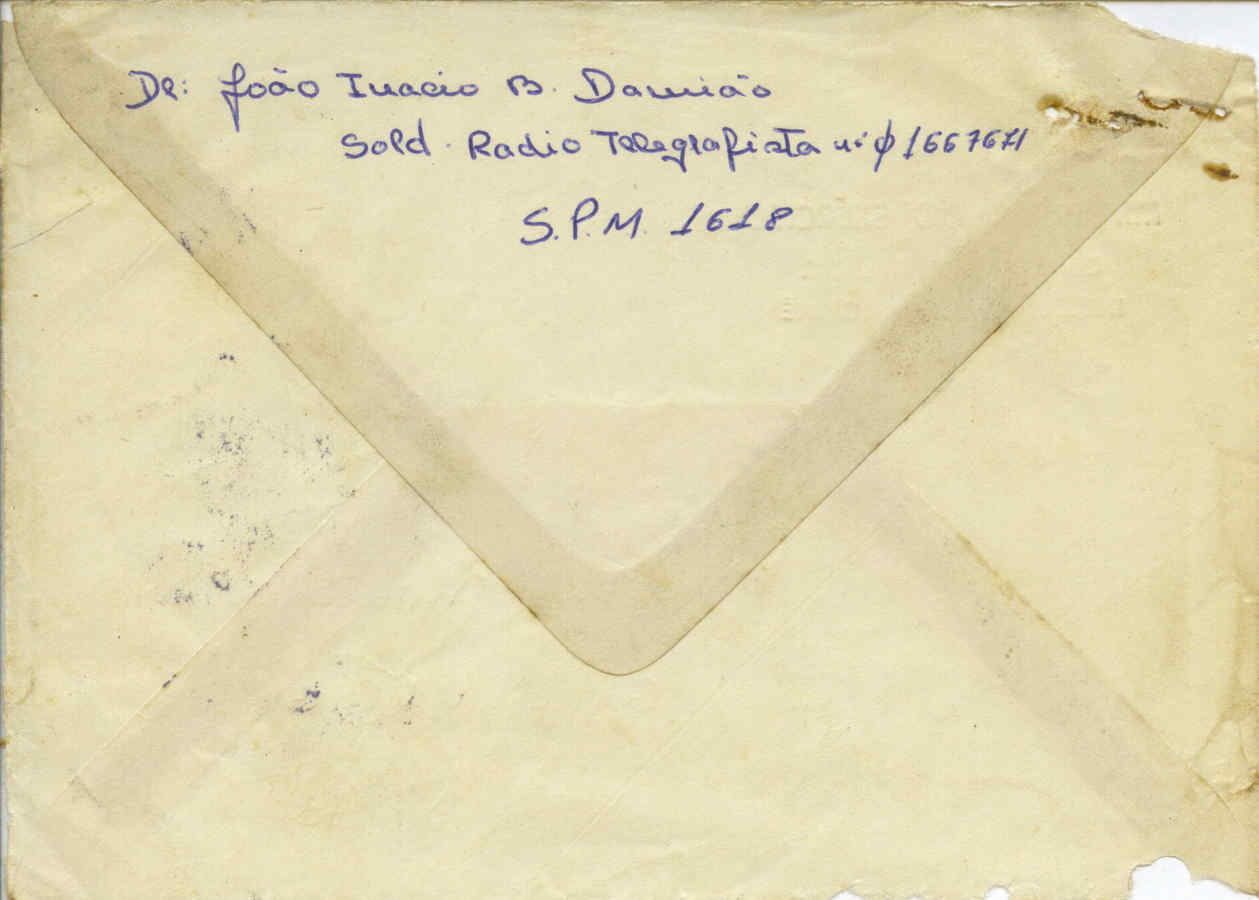 De: João Inacio B. Damião
Sold. Radio Telegrafista nº ϕ1667671
S.P.M. 1618